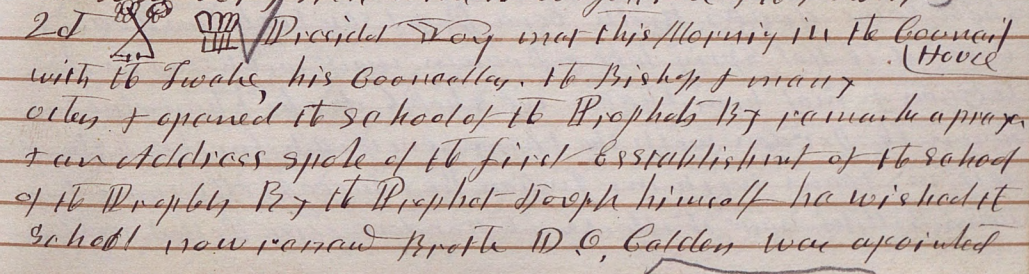 2d President Young met this Morning in the Council
House
with the Twelve, his Councellors. the Bishops & many
others & opened the School of the Prophets By remarks a prayer
& an Address spoke of the first Esstablishment of the School
of the Prophets By the Prophet Joseph himself he wished the
School now renewed Brother D. O. Calder was apointed